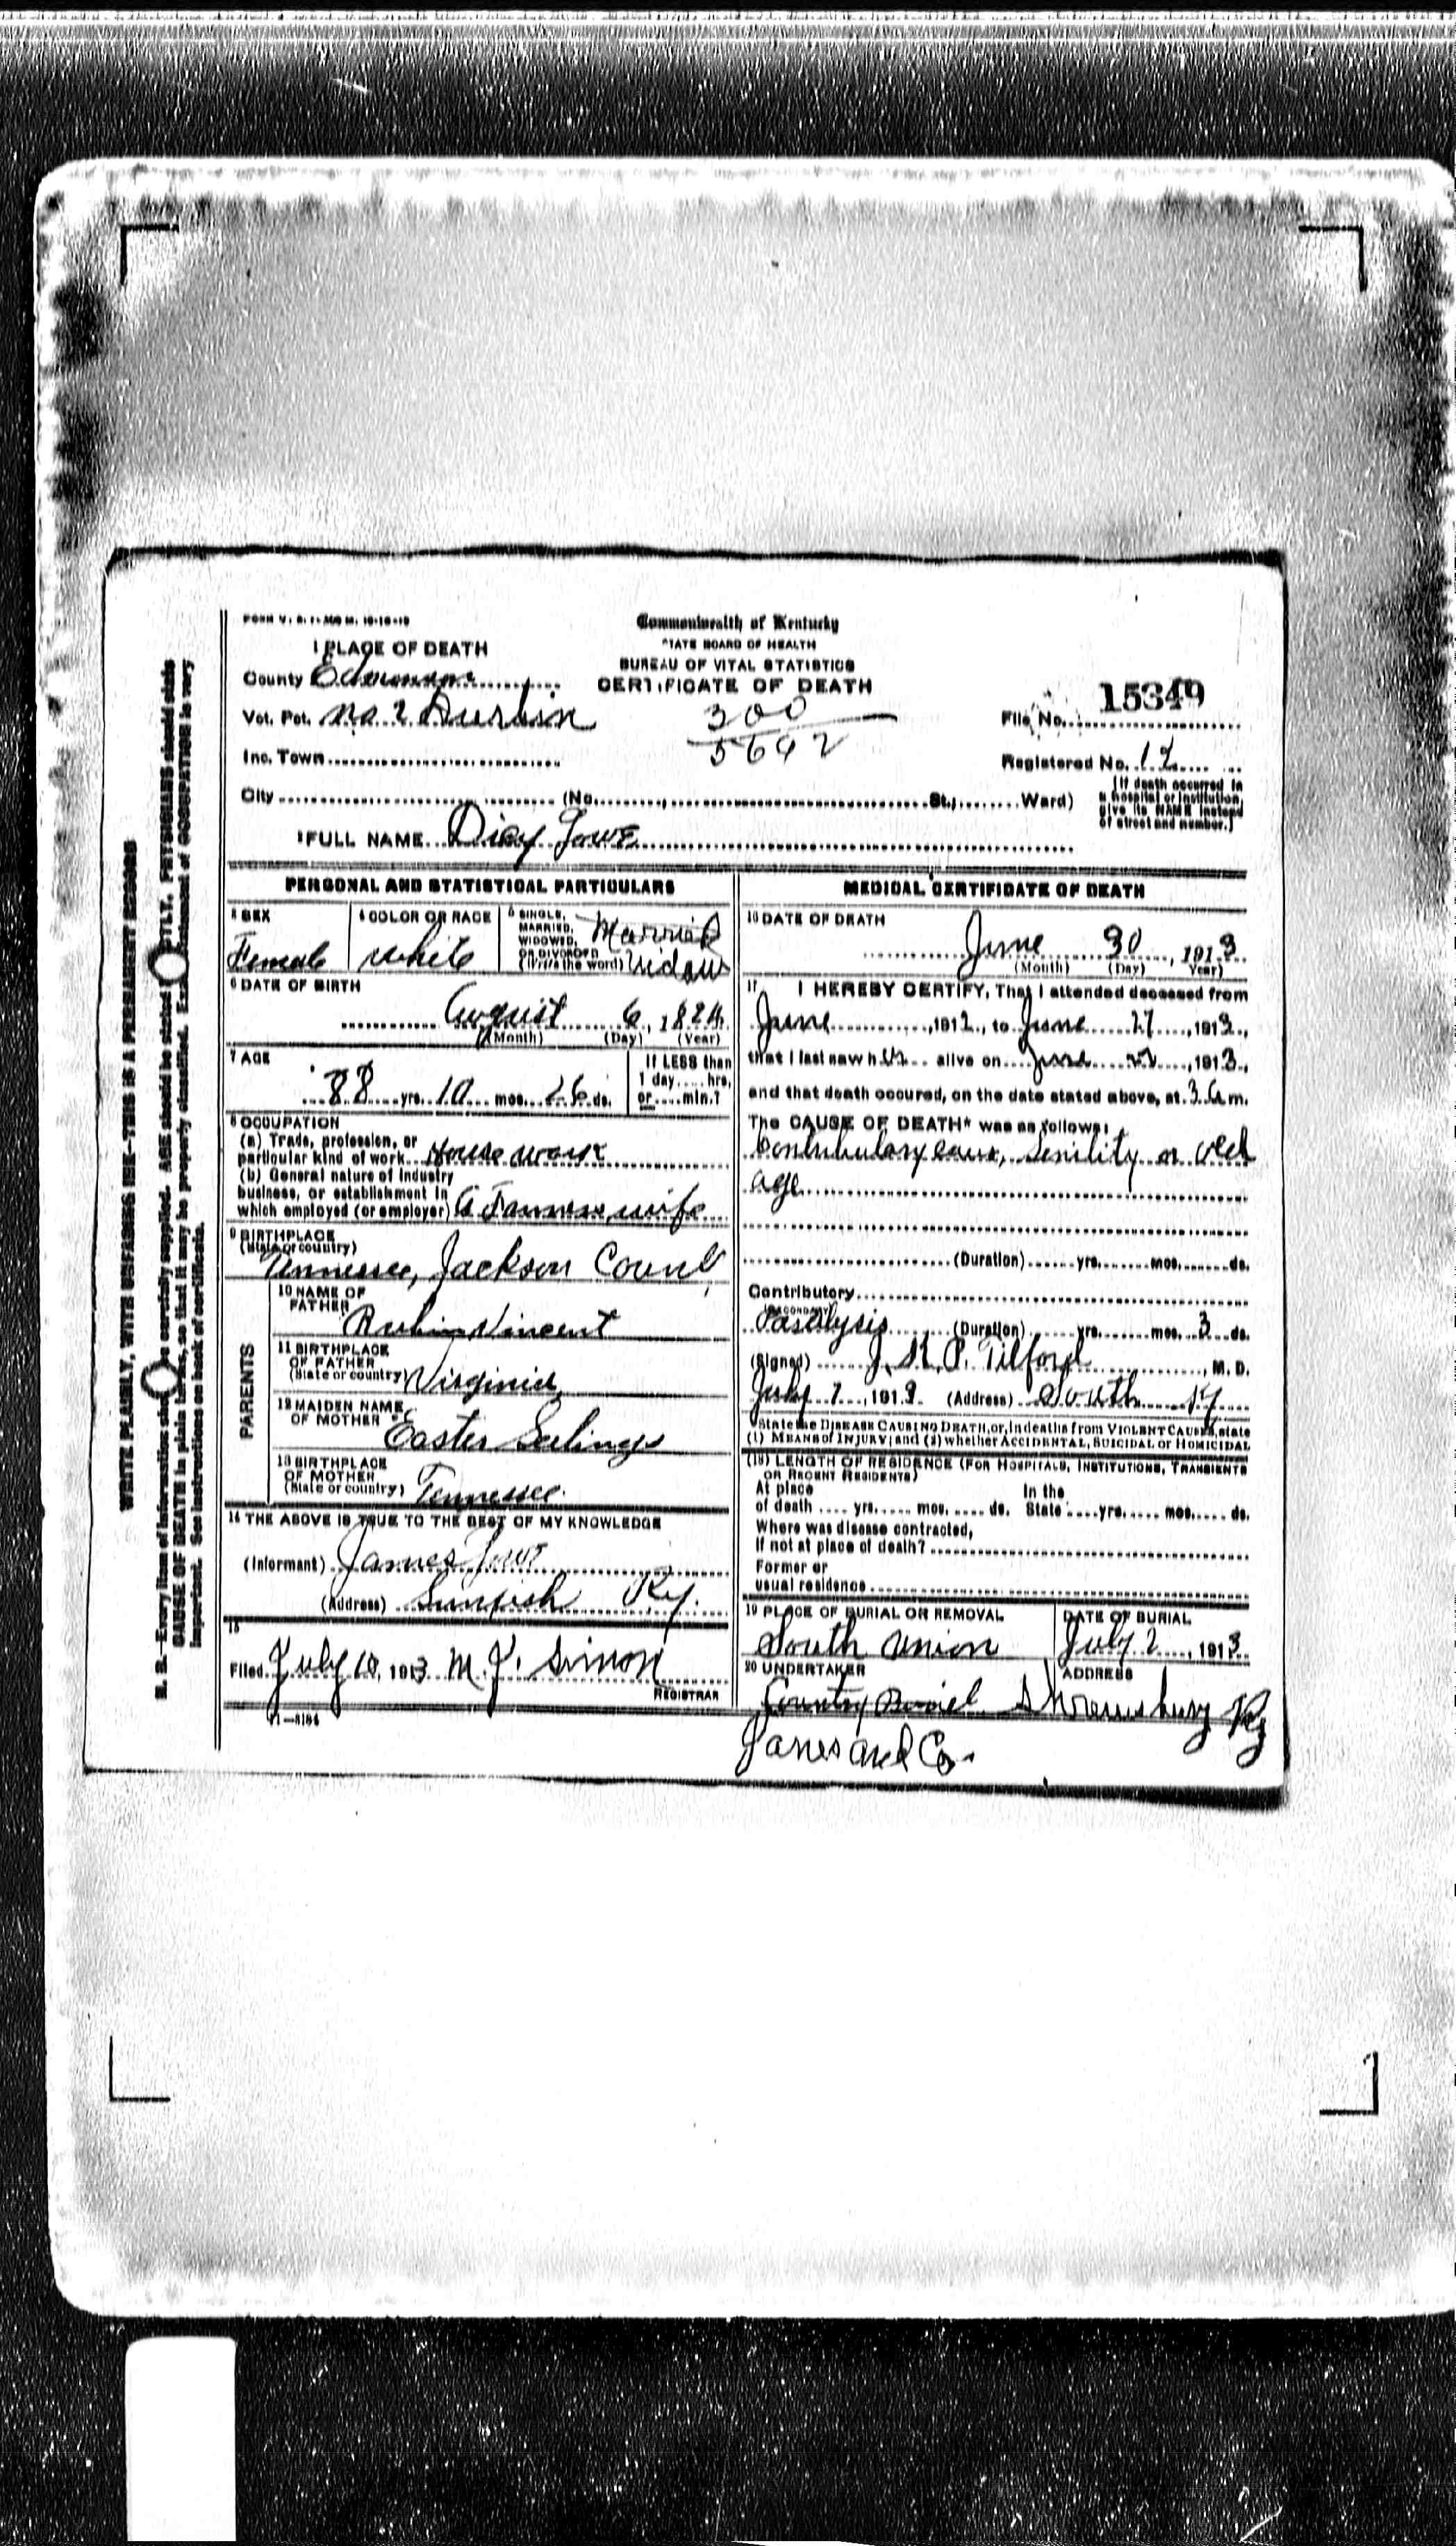 FORM V. S. 1-
Commonwealth of Kentucky
STATE BOARD OF HEALTH
BUREAU OF VITAL STATISTICS
CERTIFICATE OF DEATH
1 PLACE OF DEATH
County Edmonson
Vot. Pct. No. 2 Durbin
Inc. Town
City (No. St.; Ward)
300
5692
File No. 15349
Registered No. 12
(If death occurred in
a hospital or institution,
give its NAME instead
of street and number.)
2 FULL NAME Dicy Jowe
PERSONAL AND STATISTICAL PARTICULARS
3 SEX
Female
4 COLOR OR RACE
White
5 SINGLE,
MARRIED,
WIDOWED,
OR DIVORCED
(Write the word)
Married
Widow
6 DATE OF BIRTH
August 6, 1824
(Month) (Day) (Year)
7 AGE
88 yrs. 10 mos. 26 ds.
If LESS than
1 day.... hrs.
or.....min.?
8 OCCUPATION
(a) Trade, profession, or
particular kind of work House work
(b) General nature of industry
business, or establishment in
which employed (or employer) A Farmers wife
9 BIRTHPLACE
(State or country)
Tennessee, Jackson
PARENTS
10 NAME OF
FATHER
Rubin Vincent
11 BIRTHPLACE
OF FATHER
(State or country) Virginia
12 MAIDEN NAME
OF MOTHER
Easter
13 BIRTHPLACE
OF MOTHER
(State or country) Tennessee.
14 THE ABOVE IS TRUE TO THE BEST OF MY KNOWLEDGE
(Informant) James
(Address) Sunfish Ky.
15
Filed July 10, 1913 M. J. Simon
REGISTRAR
11-3184
MEDICAL CERTIFICATE OF DEATH
16 DATE OF DEATH
June 30, 1913
(Month) (Day) Year)
17 I HEREBY CERTIFY, That I attended deceased from
June, 1912, to June 27, 1913,
that I last saw her alive on June, 1913,
and that death occured, on the date stated above, at 3 a m.
The CAUSE OF DEATH* was as follows:
Contributary cause, Senility or old
age
(Duration) yrs. mos. ds.
Contributory
(SECONDARY)
Paralysis (Duration) yrs. mos. 3 ds.
(Signed) J. K. P. Tilford, M. D.
July 7, 1913. (Address) South Ky
*State the DISEASE CAUSING DEATH, or, in deaths from VIOLENT CAUSES, state
(1) MEANS of INJURY; and (2) whether ACCIDENTAL, SUICIDAL or HOMICIDAL
(18) LENGTH OF RESIDENCE (FOR HOSPITALS, INSTITUTIONS, TRANSIENTS
OR RECENT RESIDENTS)
At place In the
of death .... yrs. .... mos. .... ds. State .... yrs. .... mos. .... ds.
Where was disease contracted,
If not at place of death?
Former or
usual residence
19 PLACE OF BURIAL OR REMOVAL
South Union
DATE OF BURIAL
July 2, 1913
20 UNDERTAKER
Country
ADDRESS
Shrewsbury Ky
Janes and Co.
WRITE PLAINLY, WITH UNFADING INK—THIS IS A PERMANENT RECORD
N. B.—Every item of information should be carefully supplied. AGE should be stated EXACTLY. PHYSICIANS should state
CAUSE OF DEATH in plain terms, so that it may be properly classified. Exact statement of OCCUPATION is very
important. See instructions on back of certificate.